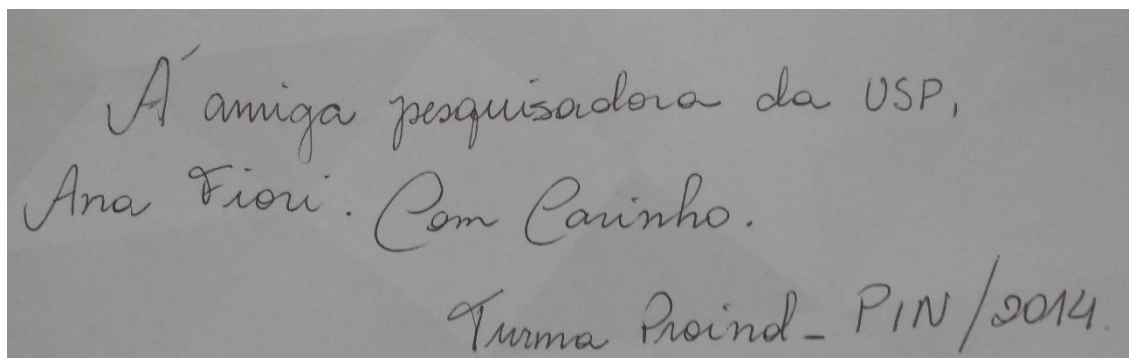 Á amiga pesquisadora da USP,
Ana Fiori. Com Carinho.
Turma Proind - PIN/2014.